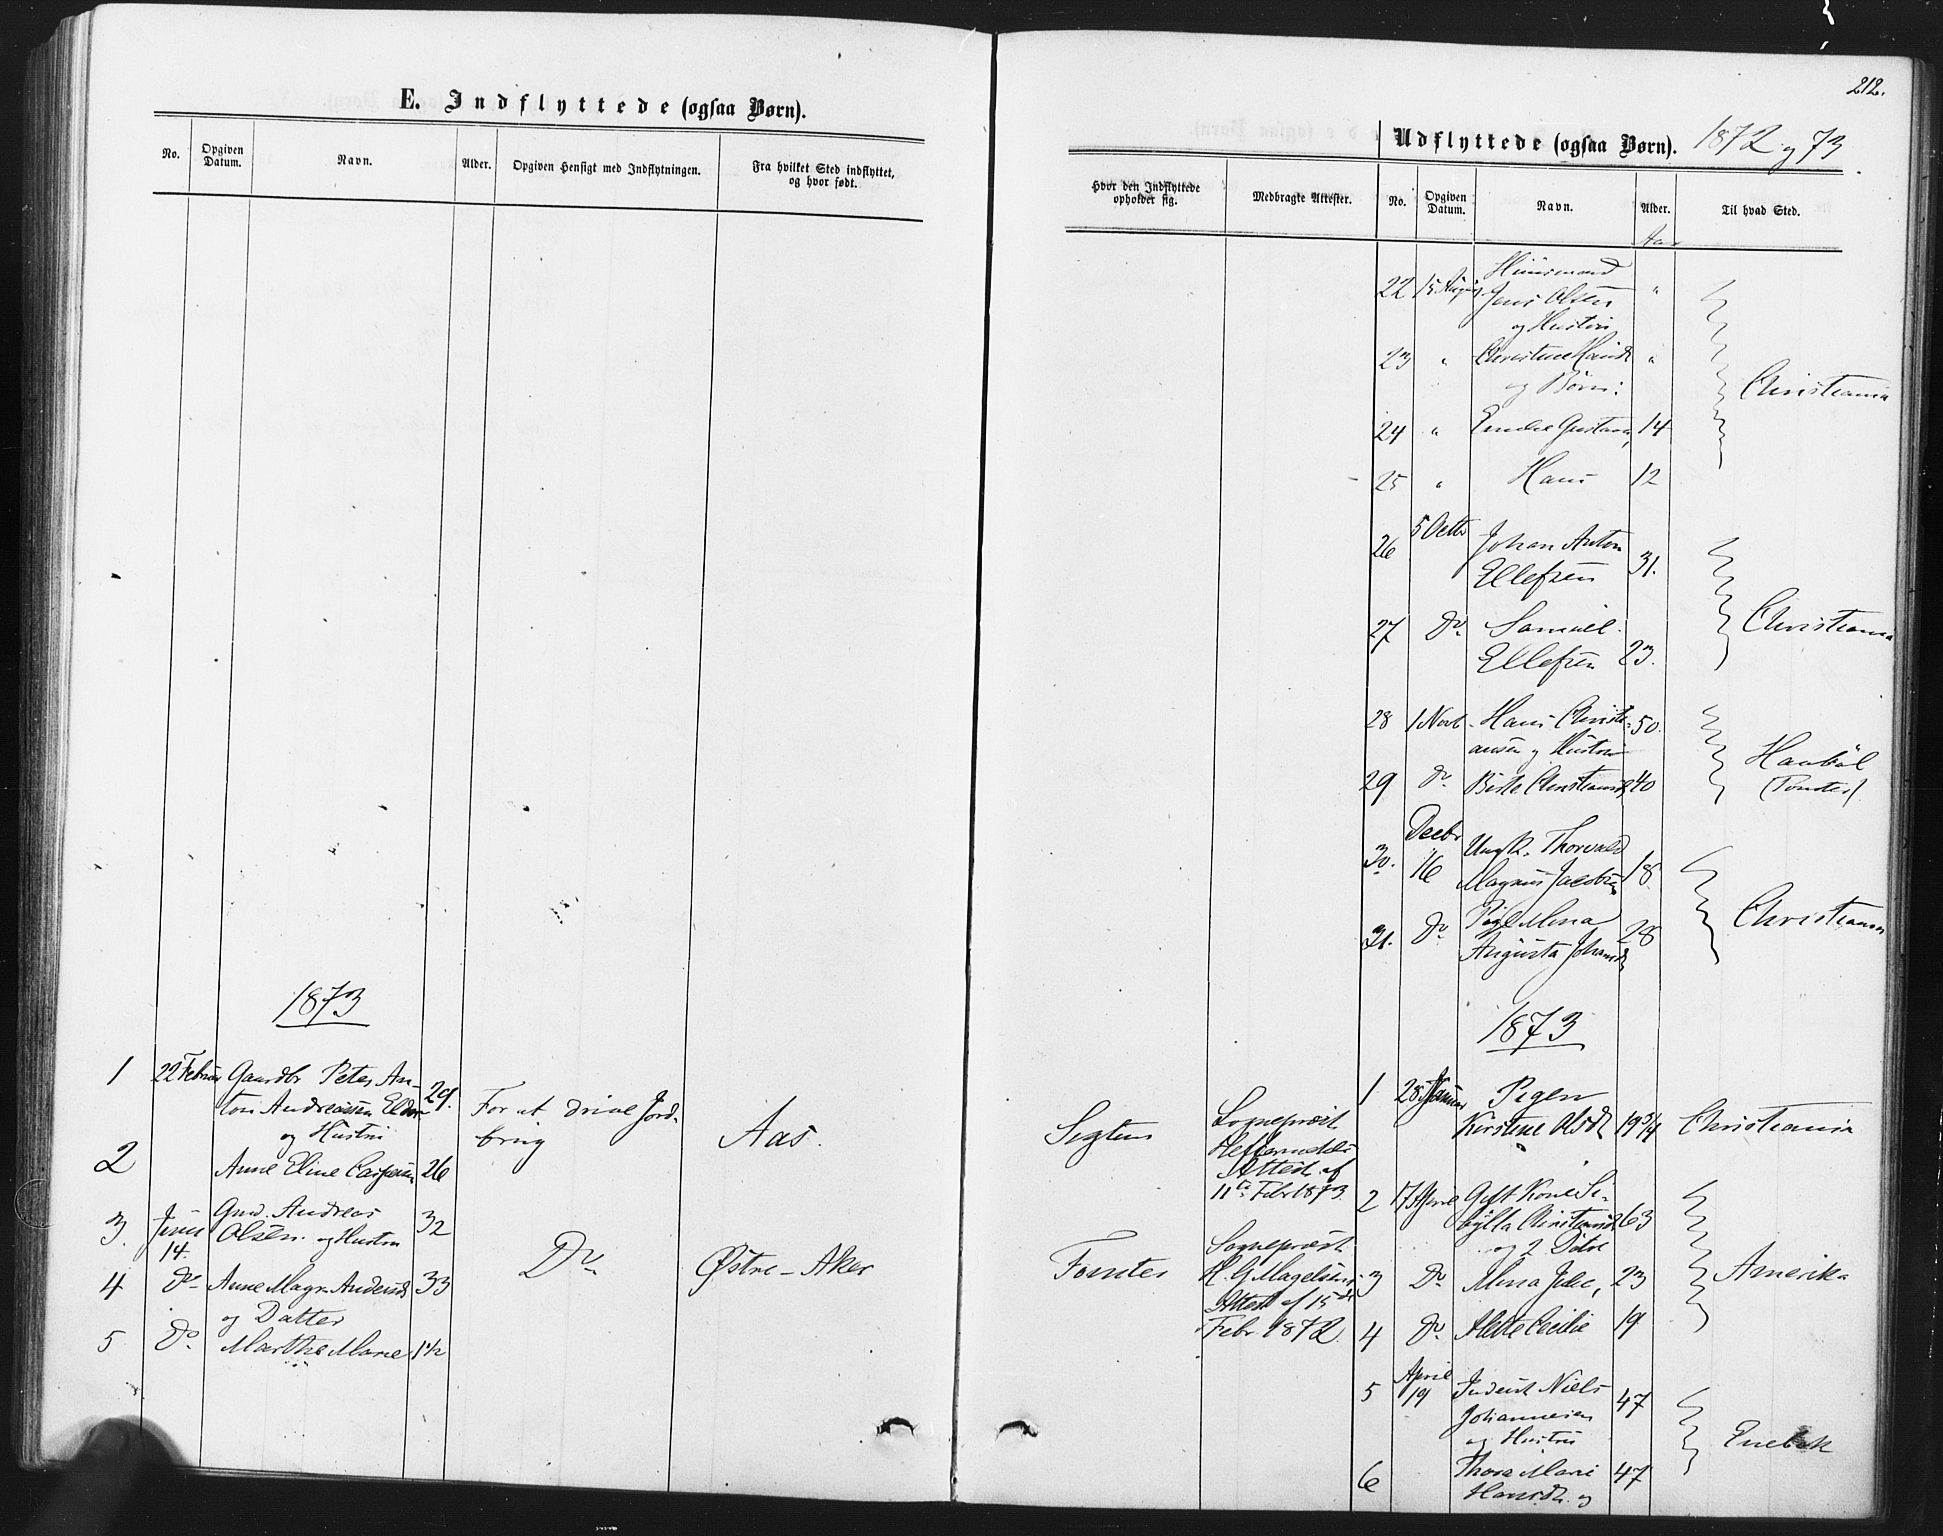 E. Indflyttede (ogsaa Børn).
No.
Opgiven Datum.
Navn.
Alder.
Opgiven Hensigt med Indflytningen.
Fra hvilket Sted indflyttet, og hvor født.
1873
1 22 Februar Gaardbr Peter An-
ton Andreassen 29.
og Hustru
For at drive Jord-
brug
Aas.
2 Anne Eline 26
3. Juni 14. Gmd. Andreas
Olsen og Hustru 32
Do
Østre-Aker
4 Do Anne Magr. Andersd 33
og Datter
5 Do Marthe Marie 1½
212.
Udflyttede (ogsaa Børn). 1872 og 73
Hvor den Indflyttede opholder sig.
Medbragte Attester.
No.
Opgiven Datum.
Navn.
Alder.
Til hvad Sted.
Aar
22 15 August Huusmand
Jens Olsen "
og Hustru
23 " Christine "
og Børn:
Christiania
24 " Gustava, 14
25 " Hans 12
26 5 Octbr Johan Anton
Ellefsen 31.
27 Do Samuel
Ellefsen 23.
Christiania
28 1 Novb. Hans Christi- 50.
ansen og Hustru
29 Do Christiansd 40
Haabøl
(Tomter)
30. Decbr 16 Ungk. Thorvald
Magnus Jacobsen 18
31. Do Pige Mina
Augusta Johansd 28
Christiania
1873
Sogneprest
Attest af
11te Febr 1873.
1 28 Januar Pigen
Kirstine Olsdt 19¾ Christiania
2 17 April Gift Kone Si-
bylla Christiansd 63
og 2 Døtre
Tomter
Sogneprest
H. G. Magelsens
Attest af 15de
Febr. 1872.
3 Do Mina Julie, 23
Amerika
4 Do Cecilie 19
5 April 19 Inderst Niels
Johannesen 47
og Hustru
Enebak
6 Thora Marie 47
Hansdt. og